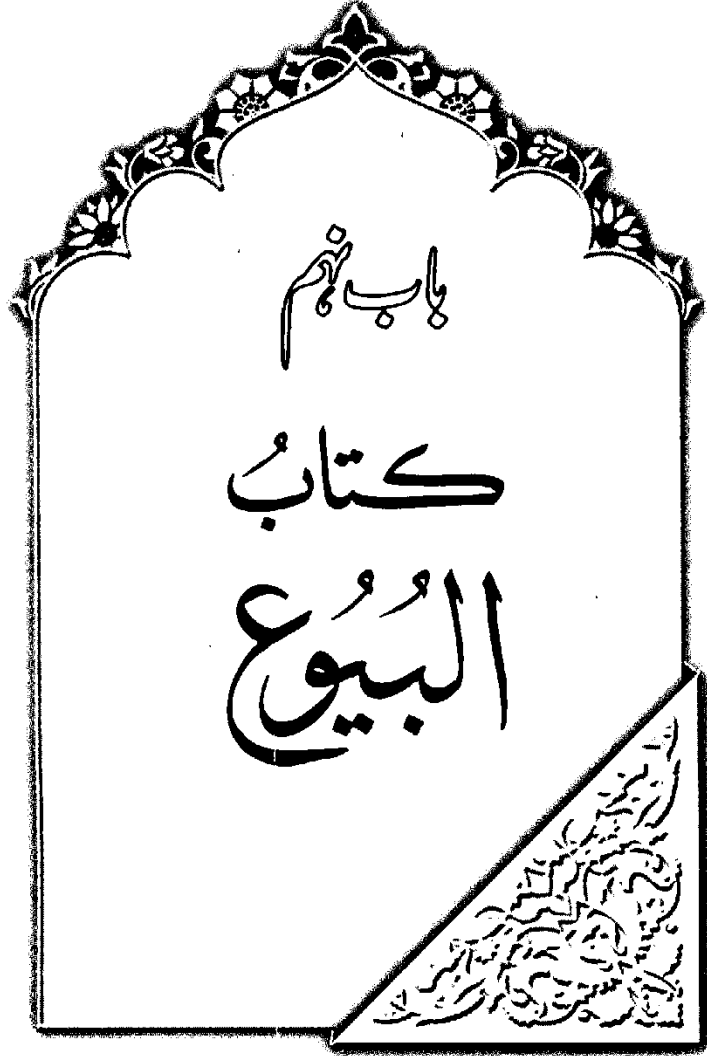 باب نہم
کتابُ
البُیُوع